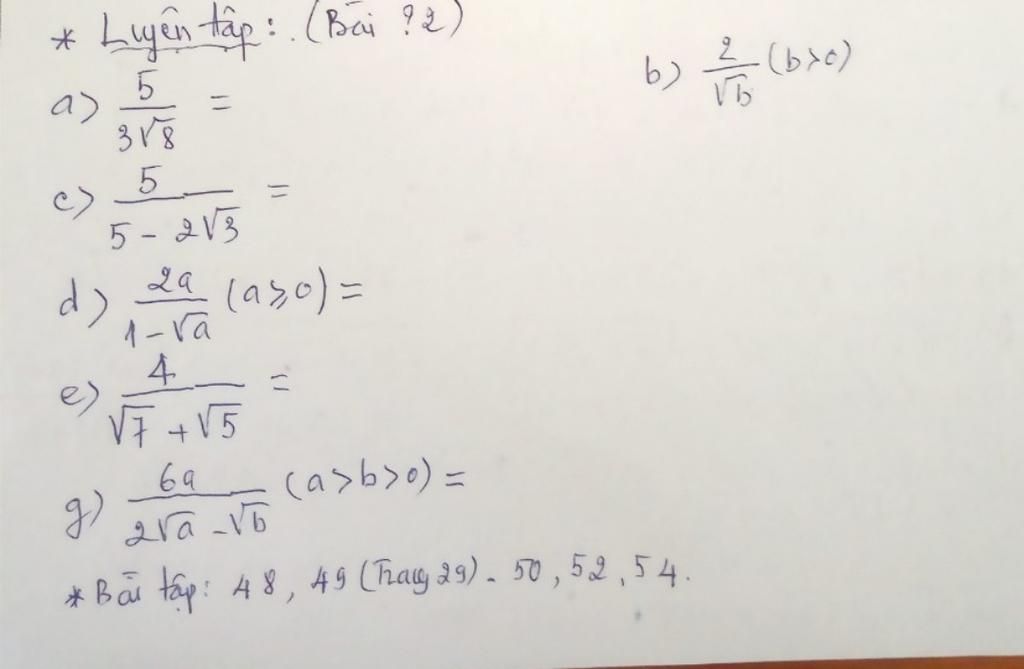 * Luyện tập: (Bài ?2)
a) 5/(3√8) =
b) 2/√b (b>0)
c) 5/(5 - 2√3) =
d) 2a/(1-√a) (a⩾0) =
e) 4/(√7 + √5) =
g) 6a/(2√a - √b) (a>b>0) =
* Bài tập: 48, 49 (Trang 29). 50, 52, 54.